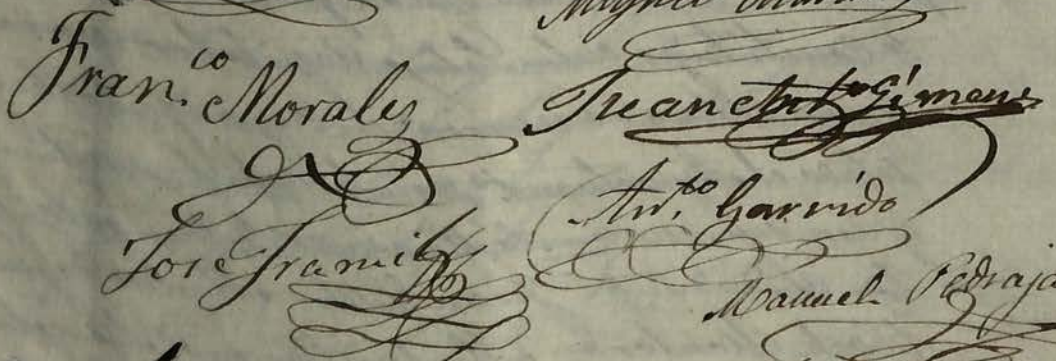 Miguel
Fran.co Morales
Juan Gimenez
Ant.to Garrido
Jose
Manuel Pedraja